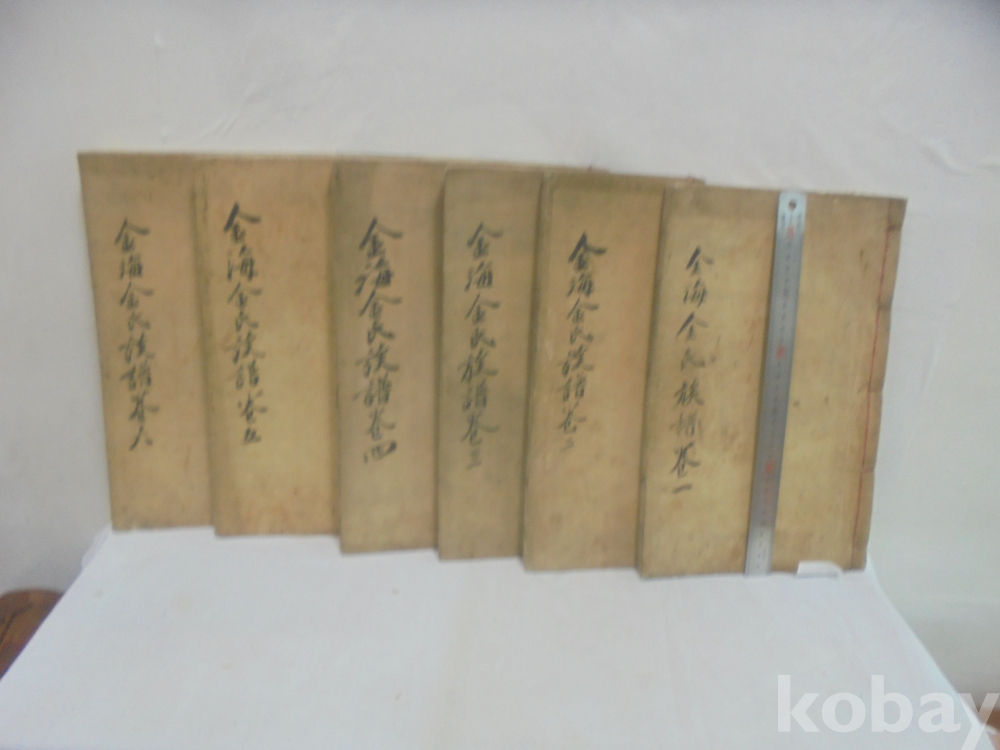 金海金氏族譜卷一
金海金氏族譜卷二
金海金氏族譜卷三
金海金氏族譜卷四
金海金氏族譜卷五
金海金氏族譜卷六
kobay